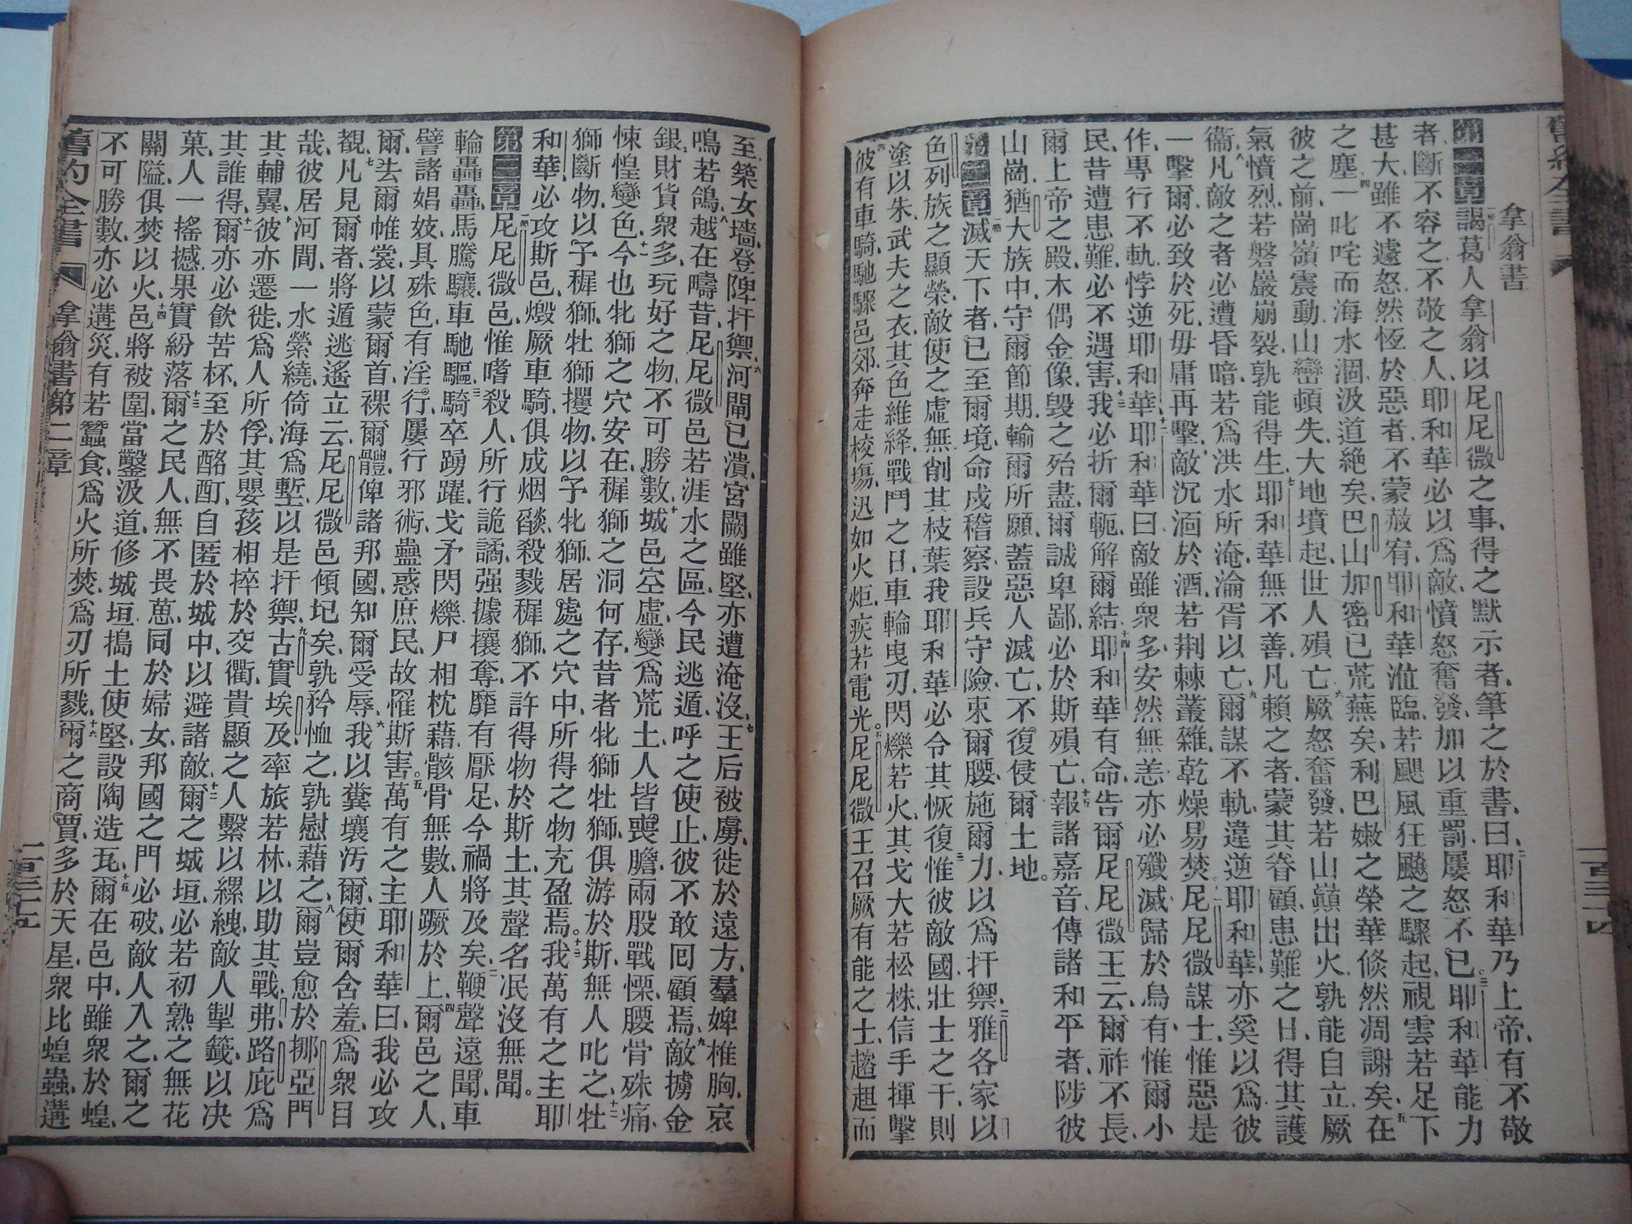 舊約全書
拿翁書
第一章謁葛人拿翁以尼尼微之事得之默示者筆之於書曰耶和華乃上帝有不敬
者斷不容之不敬之人耶和華必以爲敵憤怒奮發加以重罰屢怒不已耶和華能力
甚大雖不遽怒然恆於惡者不蒙赦宥耶和華涖臨若颶風狂飈之驟起視雲若足下
之塵一叱咤而海水涸汲道絕矣巴山加密已荒蕪矣利巴嫩之榮華倏然凋謝矣在
彼之前崗嶺震動山巒頓失大地墳起世人殞亡厥怒奮發若山巔出火孰能自立厥
氣憤烈若磐巖崩裂孰能得生耶和華無不善凡賴之者蒙其眷顧患難之日得其護
衞凡敵之者必遭昏暗若爲洪水所淹淪胥以亡爾謀不軌違逆耶和華亦奚以爲彼
一擊爾必致於死毋庸再擊敵沉湎於酒若荆棘叢雜乾燥易焚尼尼微謀士惟惡是
作專行不軌悖逆耶和華耶和華曰敵雖衆多安然無恙亦必殲滅歸於烏有惟爾小
民昔遭患難必不遇害我必折爾軛解爾結耶和華有命告爾尼尼微王云爾祚不長
爾上帝之殿木偶金像毀之殆盡爾誠卑鄙必於斯殞亡報諸嘉音傳諸和平者陟彼
山崗猶大族中守爾節期輸爾所願蓋惡人滅亡不復侵爾土地
第二章滅天下者已至爾境命戍稽察設兵守險束爾腰施爾力以爲扞禦雅各家以
色列族之顯榮敵使之虛無削其枝葉我耶和華必令其恢復惟彼敵國壯士之干則
塗以朱武夫之衣其色維絳戰鬥之日車輪曳刃閃爍若火其戈大若松株信手揮擊
彼有車騎馳驟邑郊奔走校塲迅如火炬疾若電光尼尼微王召厥有能之士趦趄而
至築女墻登陴扞禦河閘已潰宮闕雖堅亦遭淹沒王后被虜徙於遠方羣婢椎胸哀
鳴若鴿越在疇昔尼尼微邑若涯水之區今民逃遁呼之使止彼不敢回顧焉敵擄金
銀財貨衆多玩好之物不可勝數城邑空虛變爲荒土人皆喪膽兩股戰慄腰骨殊痛
悚惶變色今也牝獅之穴安在穉獅之洞何存昔者牝獅牡獅俱游於斯無人叱之牡
獅斷物以予穉獅牡獅攫物以予牝獅居處之穴中所得之物充盈焉我萬有之主耶
和華必攻斯邑燬厥車騎俱成烟燄殺戮穉獅不許得物於斯土其聲名泯沒無聞
第三章尼尼微邑惟嗜殺人所行詭譎强據攘奪靡有厭足今禍將及矣鞭聲遠聞車
輪轟轟馬騰驤車馳驅騎卒踴躍戈矛閃爍尸相枕藉骸骨無數人蹶於上爾邑之人
譬諸娼妓具殊色有淫行屢行邪術蠱惑庶民故罹斯害萬有之主耶和華曰我必攻
爾去爾帷裳以蒙爾首裸爾體俾諸邦國知爾受辱我以糞壤汚爾使爾含羞爲衆目
觀凡見爾者將遁逃遙立云尼尼微邑傾圮矣孰矜恤之孰慰藉之爾豈愈於挪亞門
哉彼居河間一水縈繞倚海爲塹以是扞禦古實埃及率旅若林以助其戰弗路庇爲
其輔翼彼亦遷徙爲人所俘其嬰孩相捽於交衢貴顯之人繫以縲絏敵人掣籤以決
其誰得爾亦必飲苦杯至於酩酊自匿於城中以避諸敵爾之城垣必若初熟之無花
菓人一搖撼果實紛落爾之民人無不畏葸同於婦女邦國之門必破敵人入之爾之
關隘俱焚以火邑將被圍當鑿汲道修城垣搗土使堅設陶造瓦爾在邑中雖衆於蝗
不可勝數亦必遘災有若蠶食爲火所焚爲刃所戮爾之商賈多於天星衆比蝗蟲遘
舊約全書
拿翁書第二章